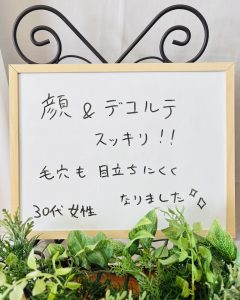 顔 & デコルテ
スッキリ!!
毛穴も 目立ちにくく
30代 女性 なりました